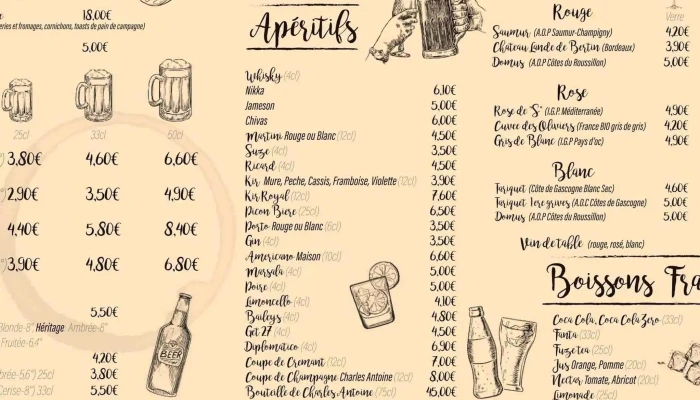 18,00€
eries et fromages, cornichons, toasts de pain de campagne)
5,00€
25cl 33cl 50cl
3,80€ 4,60€ 6,60€
2,90€ 3,50€ 4,90€
4,40€ 5,80€ 8,40€
3,90€ 4,80€ 6,80€
5,50€
Blonde-8° Héritage Ambrée-8°
Fruitée-6.4°
4,20€
brée-5,6°) 25cl 3,80€
Cerise-8°) 33cl 5,50€
BEER
Apéritifs
Whisky (4cl)
Nikka 6,10€
Jameson 5,00€
Chivas 6,00€
Martini Rouge ou Blanc (12cl) 4,50€
Suze (4cl) 3,50€
Ricard (4cl) 4,50€
Kir Mure, Peche, Cassis, Framboise, Violette (12cl) 3,90€
Kir Royal (12cl) 7,60€
Picon Biere (25cl) 6,50€
Porto Rouge ou Blanc (6cl) 3,50€
Gin (4cl) 3,50€
Americano Maison (10cl) 6,60€
Marsala (4cl) 5,00€
Poire (4cl) 5,00€
Limoncello (4cl) 4,10€
Baileys (4cl) 4,80€
Get 27 (4cl) 4,50€
Diplomatico (4cl) 6,90€
Coupe de Cremant (12cl) 7,00€
Coupe de Champagne Charles Antoine (12cl) 8,00€
Bouteille de Charles Antoine (75cl) 45,00€
Rouge
Verre
Saumur (A.O.P Saumur-Champigny) 4,20€
Chateau Lande de Bertin (Bordeaux) 3,90€
Domus (A.O.P Côtes du Roussillon) 5,00€
Rose
Rose de "S" (I.G.P. Méditerranée) 4,90€
Cuvee des Oliviers (France BIO gris de gris) 4,20€
Gris de Blanc (I.G.P Pays d'oc) 4,90€
Blanc
Tariquet (Côte de Gascogne Blanc Sec) 4,60€
Tariquet 1ere grives (A.O.C Côtes de Gascogne) 5,00€
Domus (A.O.P Côtes du Roussillon) 5,00€
Vin de table (rouge, rosé, blanc)
Boissons Fra
Coca Cola, Coca Cola Zero (33cl)
Fanta (33cl)
Fuzetea (25cl)
Jus Orange, Pomme (20cl)
Nectar Tomate, Abricot (20cl)
Limonade (25cl)